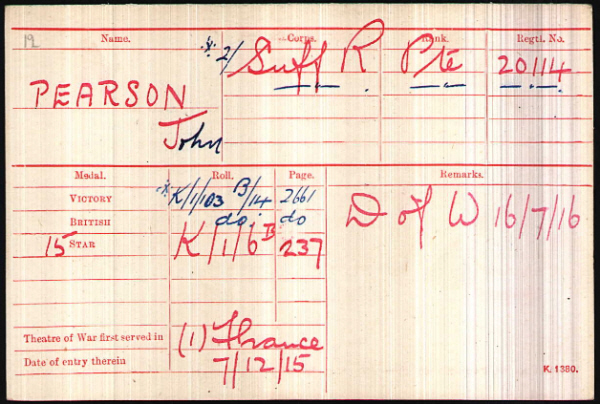 19 Name. Corps. Rank. Regtl. No.
* 2/ Suff R Pte 20114
PEARSON
John
Medal. Roll. Page. Remarks.
VICTORY * K/1/103 B/14 2661
BRITISH do. do D of W 16/7/16
15 STAR K/1/6 B 237
Theatre of War first served in (1) France
Date of entry therein 7/12/15
K. 1380.